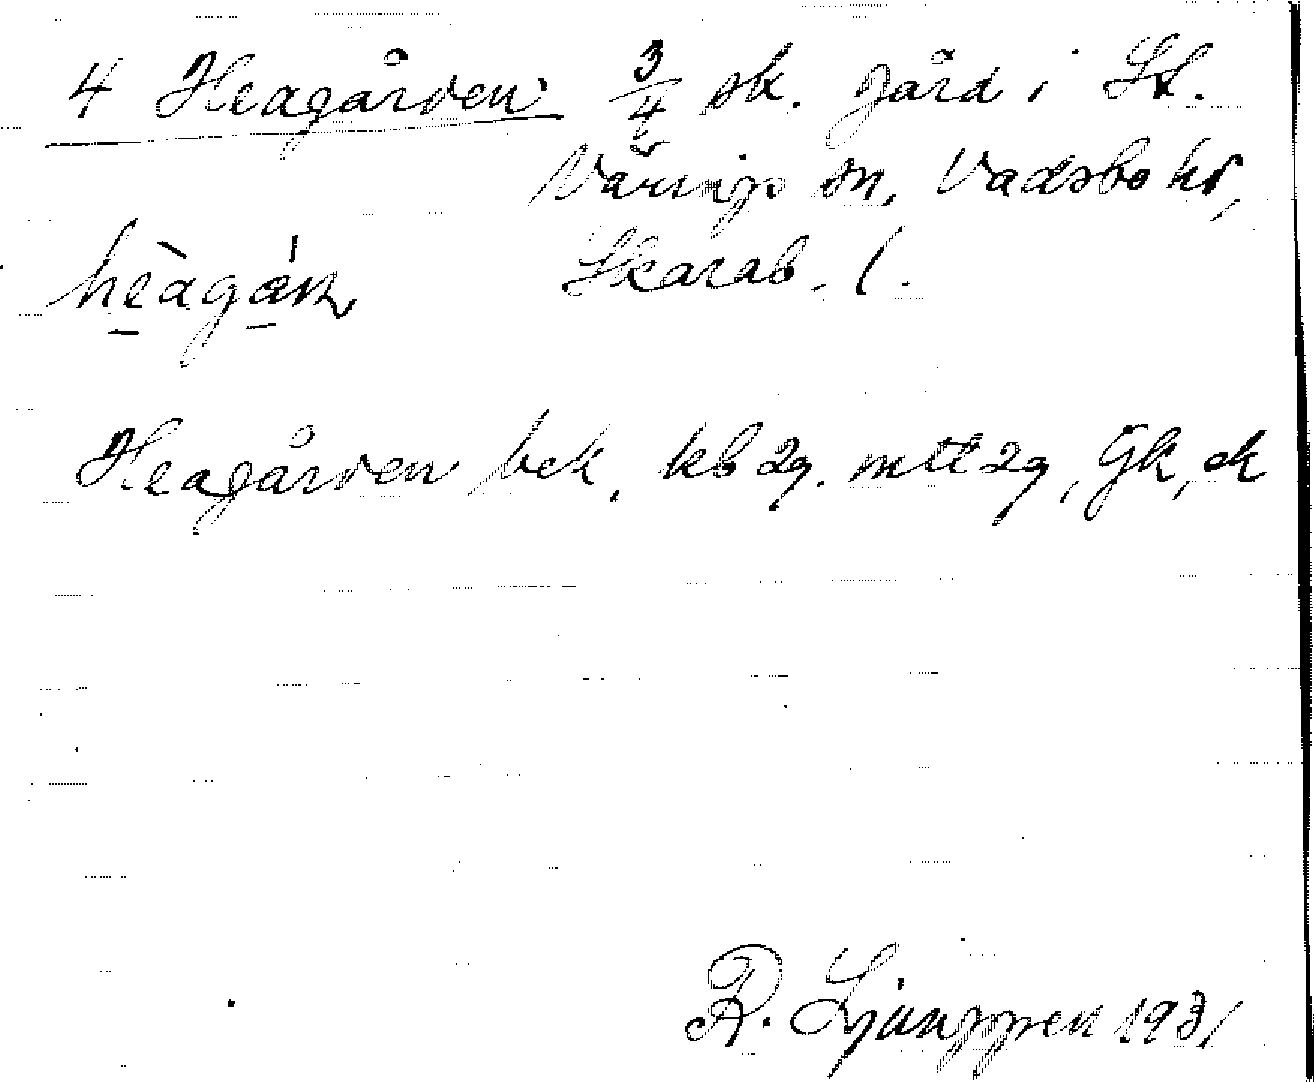 4 Heagården 3/4 sk. gård i St.
Värings sn, Vadsbo hd,
hèagán Skarab. l.
Heagården bek, kb 29. mtl 29, Gk, ek
R. Ljunggren 1931